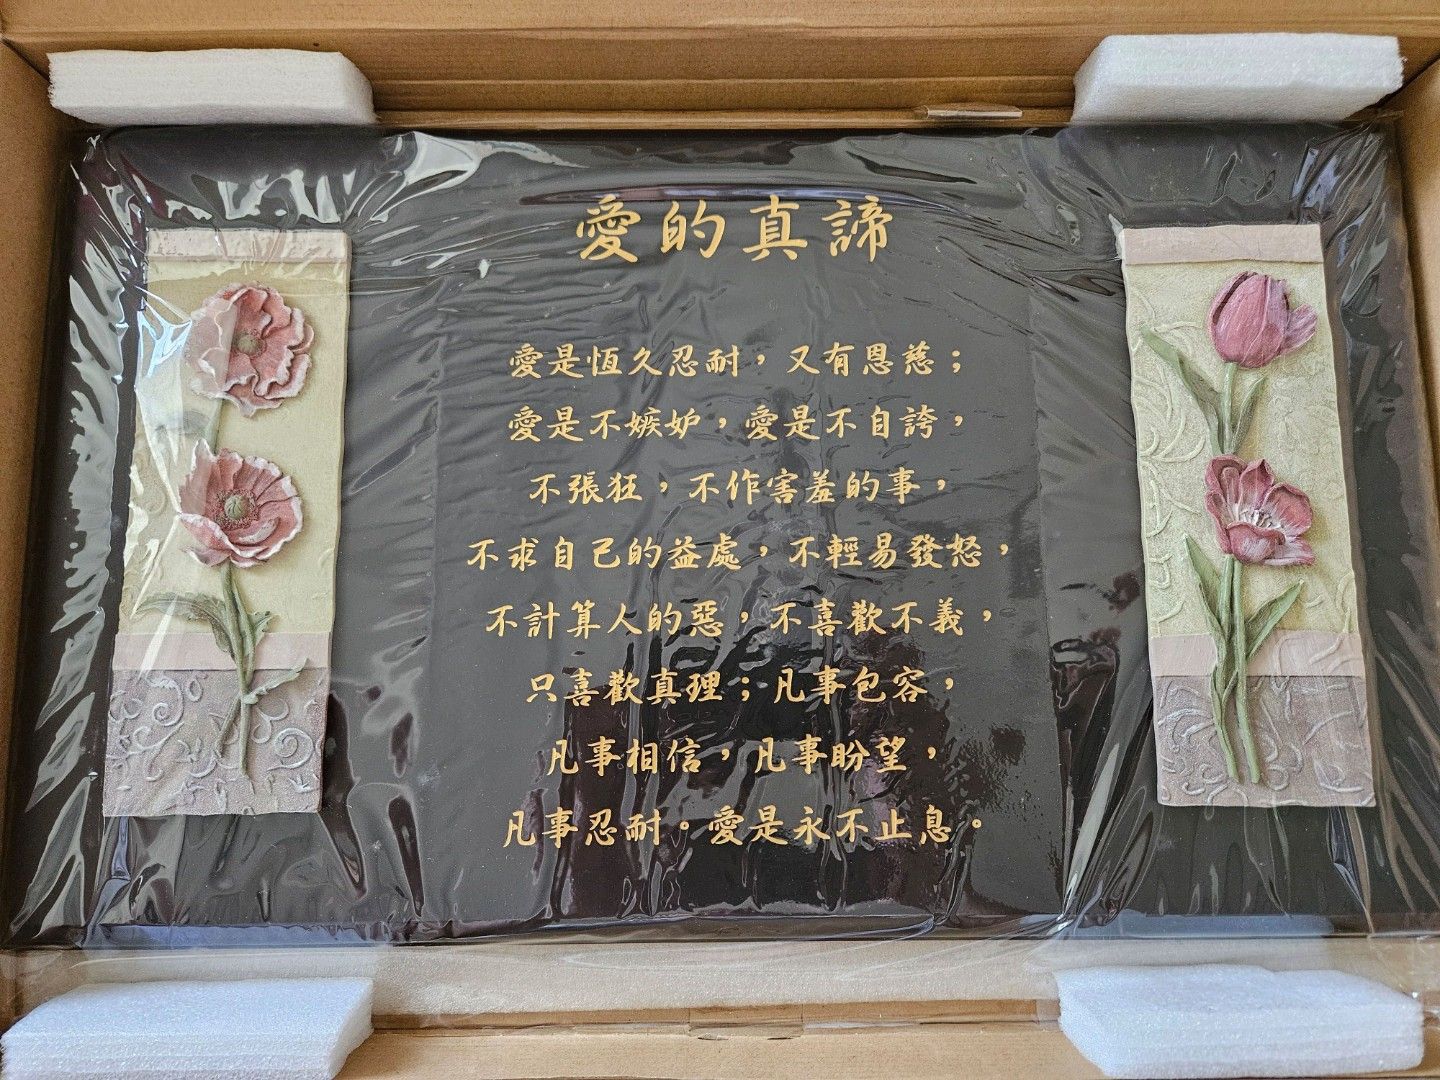 愛的真諦
愛是恆久忍耐，又有恩慈；
愛是不嫉妒，愛是不自誇，
不張狂，不作害羞的事，
不求自己的益處，不輕易發怒，
不計算人的惡，不喜歡不義，
只喜歡真理；凡事包容，
凡事相信，凡事盼望，
凡事忍耐。愛是永不止息。